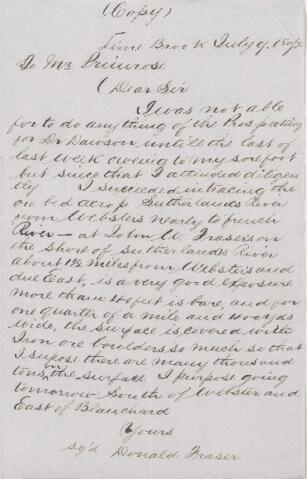 (Copy)
Lime Brook July 9. 1872
To Mr Primrose
(Dear Sir
I was not able
for to do anything of the Prospecting
for Dr Dawson, untill the last of
last week owing to my sore foot
but since that I attended diligen
tly. I succeeded in tracing the
ore bed across Sutherlands River
from Websters nearly to french
River — at John W. Frasers on
the shore of Sutherlands River
about 1½ miles from Websters and
due East, is a very good exposure
more than 40 feet is bare, and for
one quarter of a mile and 400 yds
wide, the surface is covered with
Iron ore boulders so much so that
I supose there are many thousand
tons on the surface I purpose going
tomorrow South of Webster and
East of Blanchard
Yours
sg'd Donald Fraser